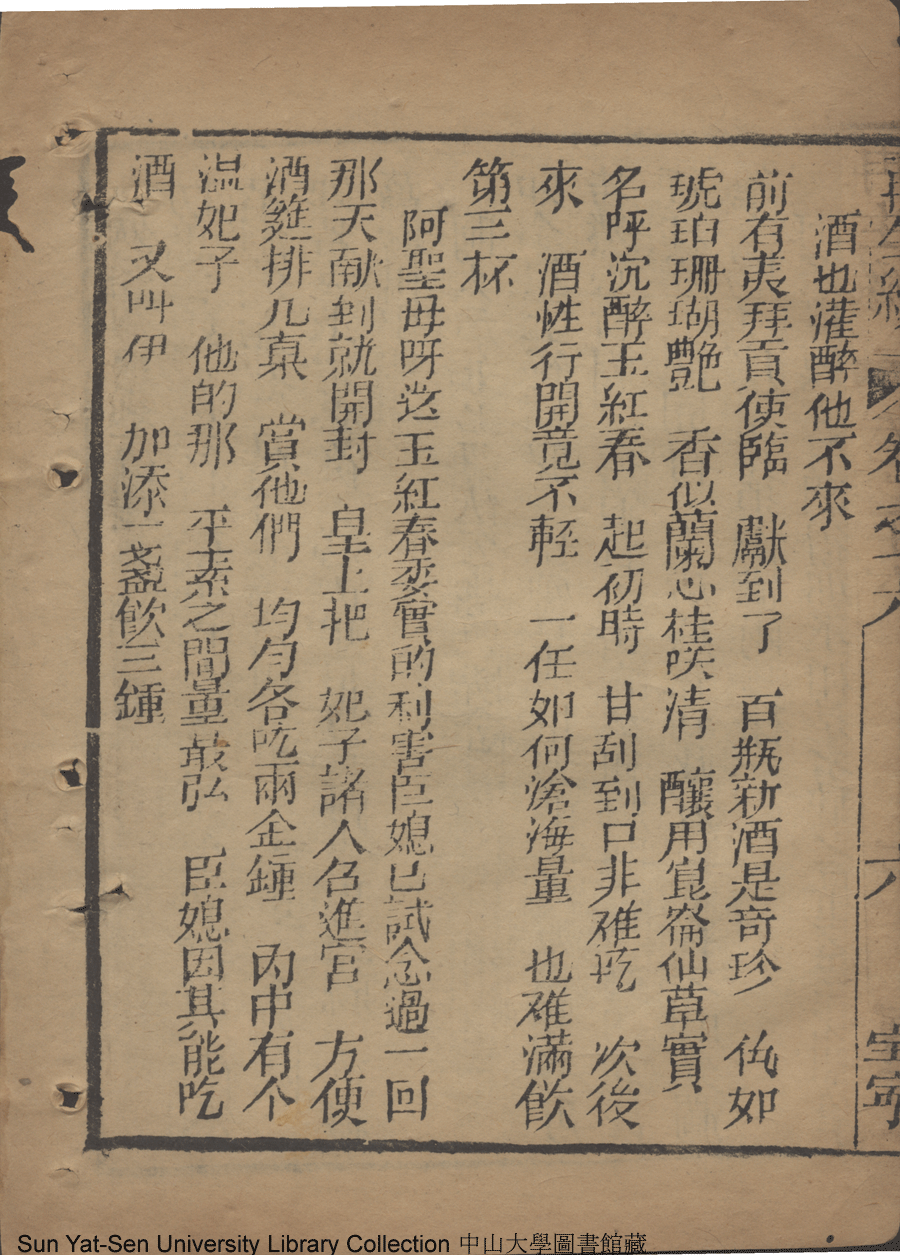 酒也灌醉他不來
前有夷拜貢使臨　獻到了　百瓶新酒是奇珍　仇如
琥珀珊瑚艷　香似蘭心桂味清　釀用崑崙仙草實
名呼沉醉玉紅春　起初時　甘刮到口非难吃　次後
來　酒性行開竟不輕　一任如何滄海量　也难滿飲
第三杯
阿聖母呀迩玉紅春委實的利害臣媳已試念過一回
那天献到就開封　皇上把　妃子諸人召進宫　方使
酒筵排几桌　賞他們　均匀各吃兩金鍾　內中有个
温妃子　他的那　平素之間量最弘　臣媳因其能吃
酒　又叫伊　加添一盞飲三鍾
六
Sun Yat-Sen University Library Collection 中山大學圖書館藏